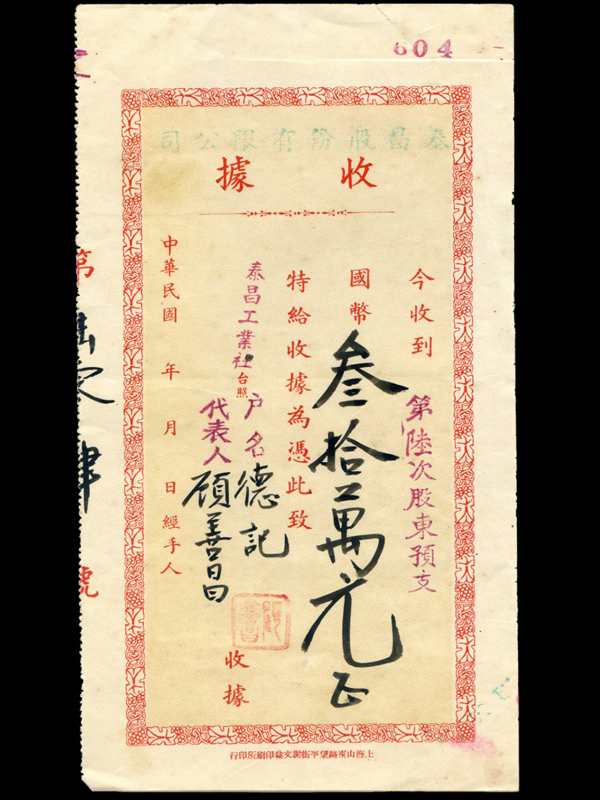 604
泰昌股份有限公司
收據
今收到
第陸次股東預支
國幣
叁拾萬元正
特給收據為憑此致
泰昌工業社台照
户名德記
代表人顧善昌
收據
中華民國 年 月 日經手人
第 次肆號
上海山東路望平街謝文益印刷所印行